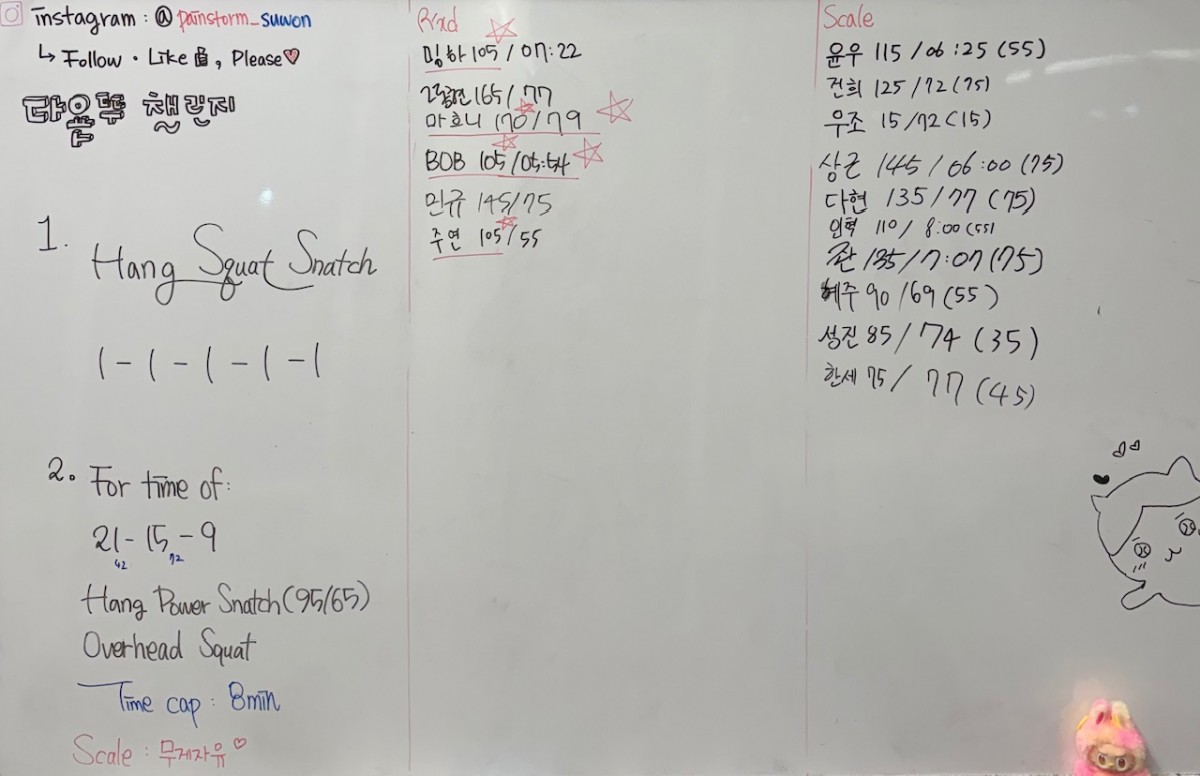 instagram : @painstorm_suwon
↳ Follow · Like 👍, Please♡
다음뚜 챌린지
1. Hang Squat Snatch
1 - 1 - 1 - 1 - 1
2. For time of:
21 - 15 - 9
42 72
Hang Power Snatch (95/65)
Overhead Squat
Time cap : 8min
Scale : 무게자유♡
Rxd
밍하 105 / 07:22
165/77
마효니 170/79
BOB 105/05:54
민규 145/75
주연 105/55
Scale
윤우 115/06:25 (55)
건희 125/72 (75)
우조 15/72 (15)
상근 145/06:00 (75)
다현 135/77 (75)
인혁 110/8:00 (55)
좐 135/7:07 (75)
혜주 90/69 (55)
성진 85/74 (35)
한세 75/77 (45)